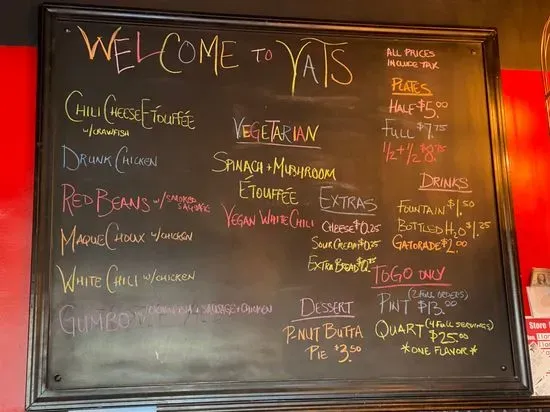 WELCOME TO YATS
CHILI CHEESE ETOUFFÉE
W/CRAWFISH
DRUNK CHICKEN
RED BEANS W/ SMOKED
SAUSAGE
MAQUE CHOUX W/CHICKEN
WHITE CHILI W/CHICKEN
GUMBO W/
SAUSAGE + CHICKEN
VEGETARIAN
SPINACH + MUSHROOM
ÉTOUFFÉE
VEGAN WHITE CHILI
EXTRAS
CHEESE $0.25
SOUR CREAM $0.25
EXTRA BREAD
DESSERT
P-NUT BUTTA
PIE $3.50
ALL PRICES
INCLUDE TAX
PLATES
HALF $5.00
FULL $7.75
1/2 + 1/2
DRINKS
FOUNTAIN $1.50
BOTTLED H2O $1.25
GATORADE $2.00
TO GO ONLY
(2 FULL ORDERS)
PINT $13.00
QUART (4 FULL SERVINGS)
$25.00
*ONE FLAVOR*
Store